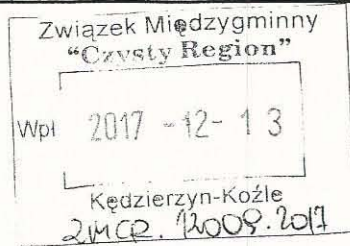 Związek Międzygminny
"Czysty Region"
Wpł 2017 -12- 13
Kędzierzyn-Koźle
ZMCR. 12009.2017